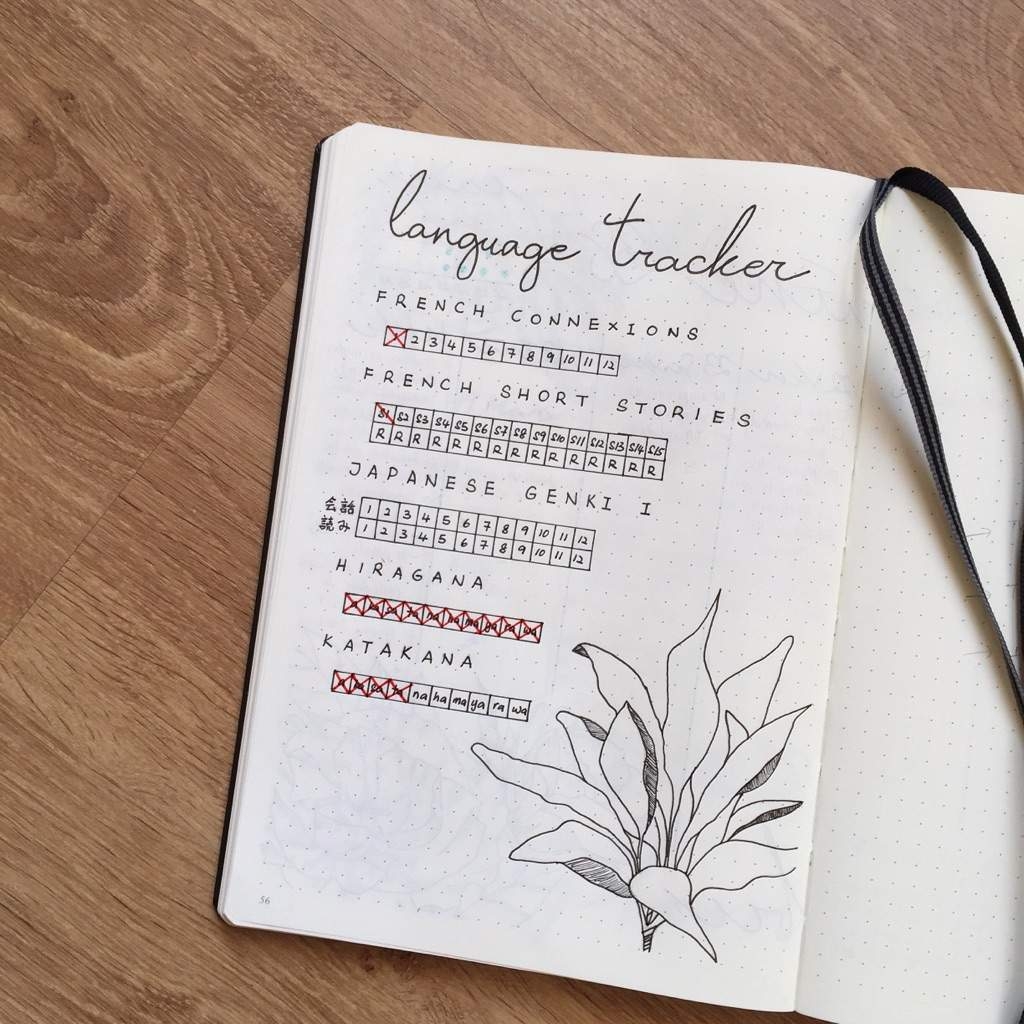 language tracker
FRENCH CONNEXIONS
1 2 3 4 5 6 7 8 9 10 11 12
FRENCH SHORT STORIES
S1 S2 S3 S4 S5 S6 S7 S8 S9 S10 S11 S12 S13 S14 S15
R R R R R R R R R R R R R R R
JAPANESE GENKI I
会話 1 2 3 4 5 6 7 8 9 10 11 12
読み 1 2 3 4 5 6 7 8 9 10 11 12
HIRAGANA
a ka sa ta na ha ma ya ra wa
KATAKANA
a ka sa ta na ha ma ya ra wa
56